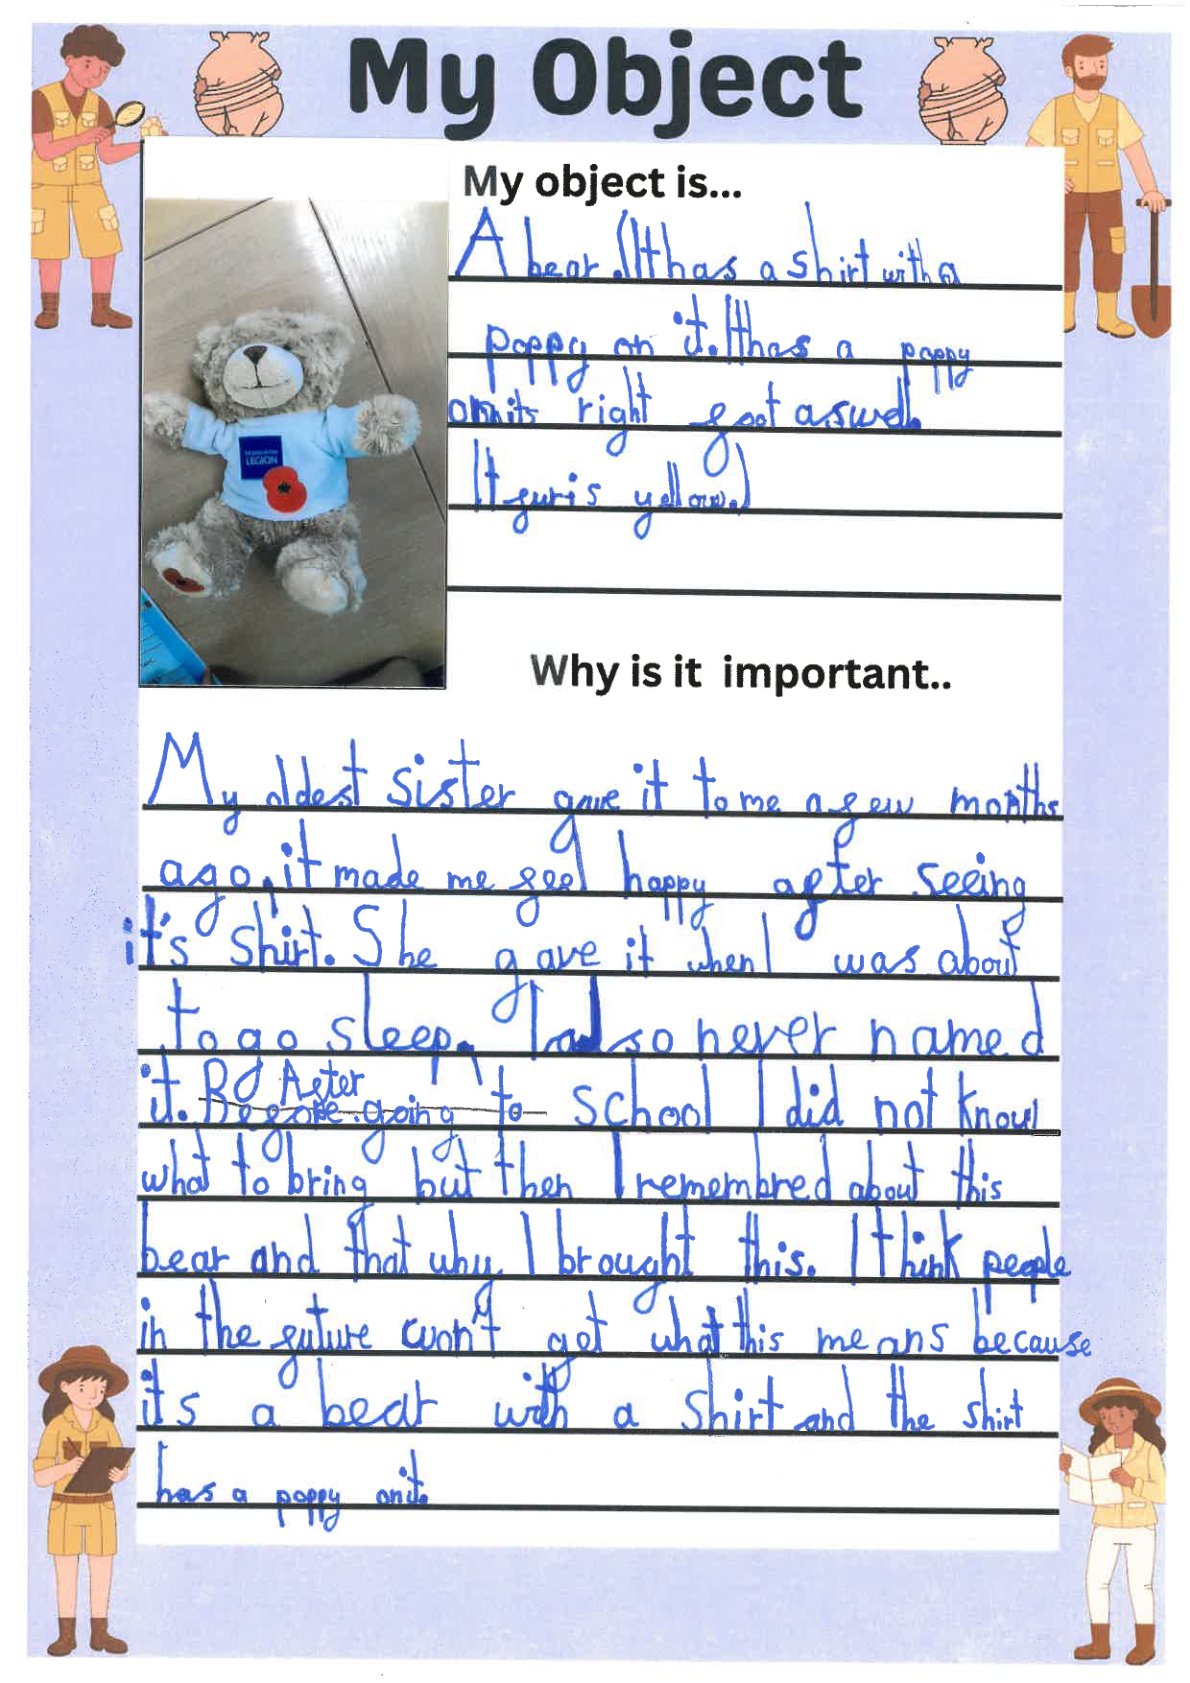 My Object
My object is...
A bear. (It has a shirt with a
poppy on it. It has a poppy
on its right foot aswell.
It fur is yellow.)
LEGION
Why is it important..
My oldest sister gave it to me a few months
ago, it made me feel happy after seeing
it's shirt. She gave it when I was about
to go sleep. I also never named
it. Before going to After school I did not know
what to bring but then I remembred about this
bear and that why I brought this. I think people
in the future won't get what this means because
its a bear with a shirt and the shirt
has a poppy on it.